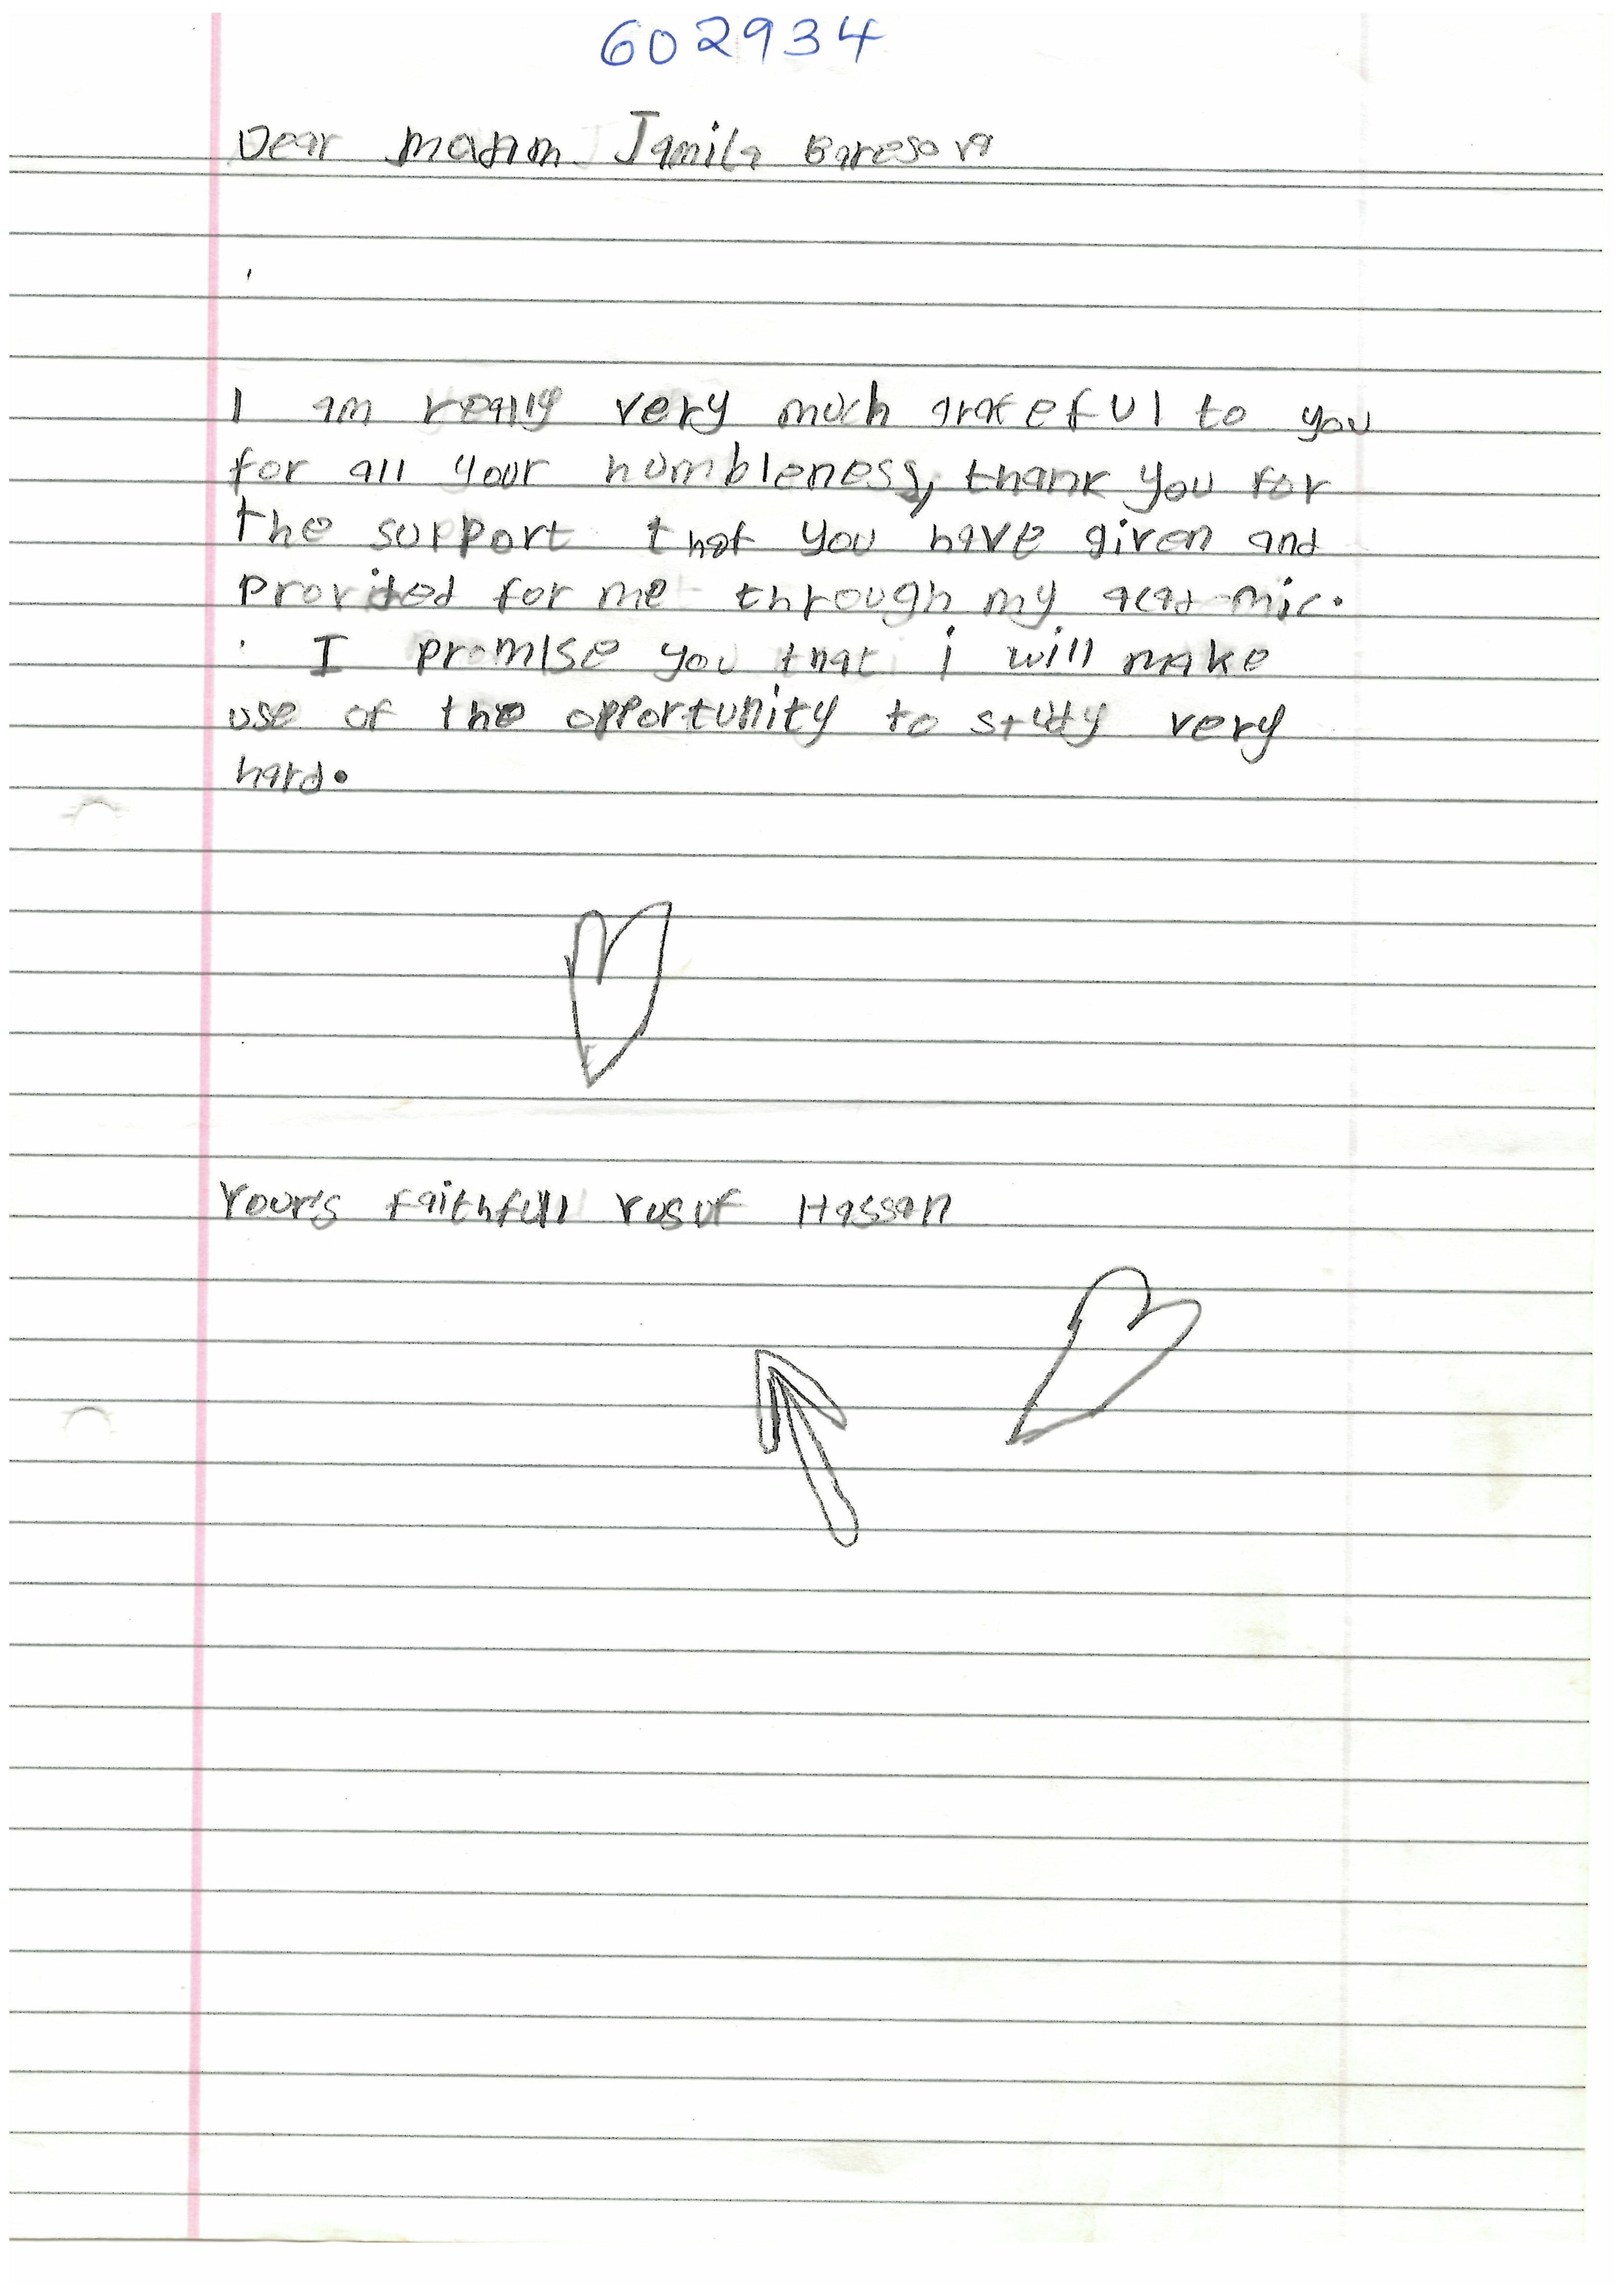 602934
Dear madam Jamila Baresova
I am really very much grateful to you
for all your humbleness, thank you for
the support that you have given and
provided for me through my academic.
I promise you that i will make
use of the opportunity to study very
hard.
Yours faithfull Yusuf Hassan